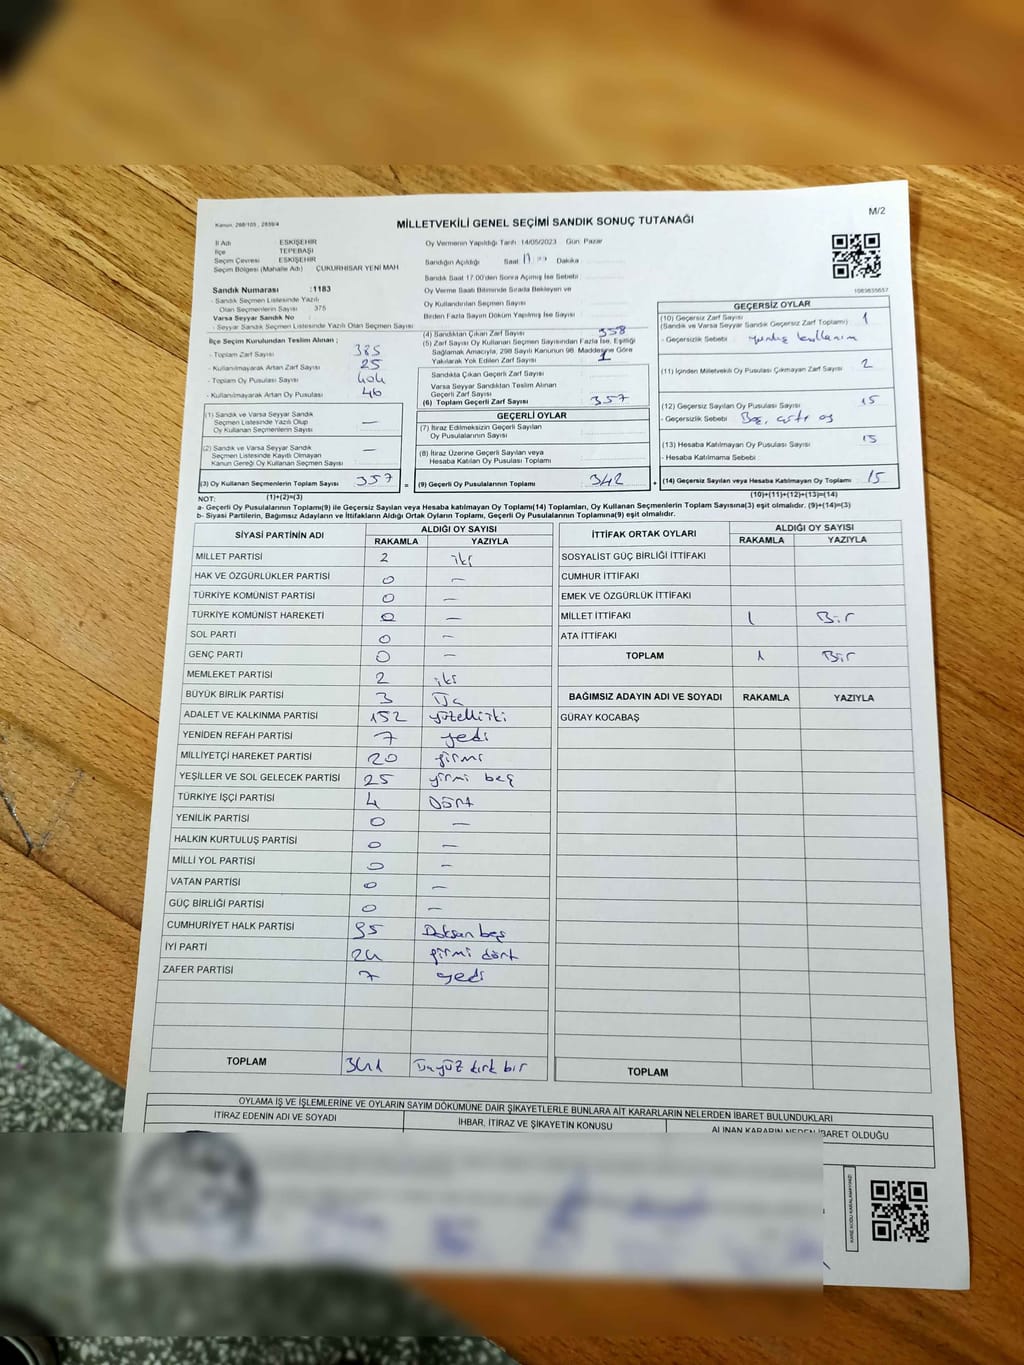 Kanun: 298/105 , 2839/4
MİLLETVEKİLİ GENEL SEÇİMİ SANDIK SONUÇ TUTANAĞI
M/2
İl Adı ESKİŞEHİR
İlçe TEPEBAŞI
Seçim Çevresi ESKİŞEHİR
Seçim Bölgesi (Mahalle Adı) ÇUKURHİSAR YENİ MAH
Sandık Numarası :1183
- Sandık Seçmen Listesinde Yazılı
Olan Seçmenlerin Sayısı 375
Varsa Seyyar Sandık No
- Seyyar Sandık Seçmen Listesinde Yazılı Olan Seçmen Sayısı
İlçe Seçim Kurulundan Teslim Alınan ;
- Toplam Zarf Sayısı 385
- Kullanılmayarak Artan Zarf Sayısı 25
- Toplam Oy Pusulası Sayısı 404
- Kullanılmayarak Artan Oy Pusulası 46
(1) Sandık ve Varsa Seyyar Sandık
Seçmen Listesinde Yazılı Olup
Oy Kullanan Seçmenlerin Sayısı —
(2) Sandık ve Varsa Seyyar Sandık
Seçmen Listesinde Kayıtlı Olmayan
Kanun Gereği Oy Kullanan Seçmen Sayısı —
(3) Oy Kullanan Seçmenlerin Toplam Sayısı 357 =
(1)+(2)=(3)
Oy Vermenin Yapıldığı Tarih 14/05/2023 Gün: Pazar
Sandığın Açıldığı Saat Dakika
Sandık Saat 17.00'den Sonra Açılmış İse Sebebi
Oy Verme Saati Bitiminde Sırada Bekleyen ve
Oy Kullandırılan Seçmen Sayısı
Birden Fazla Sayım Döküm Yapılmış İse Sayısı
(4) Sandıktan Çıkan Zarf Sayısı 358
(5) Zarf Sayısı Oy Kullanan Seçmen Sayısından Fazla İse, Eşitliği
Sağlamak Amacıyla, 298 Sayılı Kanunun 98. Maddesine Göre
Yakılarak Yok Edilen Zarf Sayısı 1
Sandıkta Çıkan Geçerli Zarf Sayısı
Varsa Seyyar Sandıktan Teslim Alınan
Geçerli Zarf Sayısı
(6) Toplam Geçerli Zarf Sayısı 357
GEÇERLİ OYLAR
(7) İtiraz Edilmeksizin Geçerli Sayılan
Oy Pusulalarının Sayısı
(8) İtiraz Üzerine Geçerli Sayılan veya
Hesaba Katılan Oy Pusulası Toplamı
(9) Geçerli Oy Pusulalarının Toplamı 342 +
1083835657
GEÇERSİZ OYLAR
(10) Geçersiz Zarf Sayısı
(Sandık ve Varsa Seyyar Sandık Geçersiz Zarf Toplamı) 1
- Geçersizlik Sebebi
(11) İçinden Milletvekili Oy Pusulası Çıkmayan Zarf Sayısı 2
(12) Geçersiz Sayılan Oy Pusulası Sayısı 15
- Geçersizlik Sebebi Boş,
(13) Hesaba Katılmayan Oy Pusulası Sayısı 15
- Hesaba Katılmama Sebebi
(14) Geçersiz Sayılan veya Hesaba Katılmayan Oy Toplamı 15
(10)+(11)+(12)+(13)=(14)
NOT:
a- Geçerli Oy Pusulalarının Toplamı(9) ile Geçersiz Sayılan veya Hesaba katılmayan Oy Toplamı(14) Toplamları, Oy Kullanan Seçmenlerin Toplam Sayısına(3) eşit olmalıdır. (9)+(14)=(3)
b- Siyasi Partilerin, Bağımsız Adayların ve İttifakların Aldığı Oyların Toplamı, Geçerli Oy Pusulalarının Toplamına(9) eşit olmalıdır.
SİYASİ PARTİNİN ADI ALDIĞI OY SAYISI
RAKAMLA YAZIYLA
MİLLET PARTİSİ 2 iki
HAK VE ÖZGÜRLÜKLER PARTİSİ 0 —
TÜRKİYE KOMÜNİST PARTİSİ 0 —
TÜRKİYE KOMÜNİST HAREKETİ 0 —
SOL PARTİ 0 —
GENÇ PARTİ 0 —
MEMLEKET PARTİSİ 2 iki
BÜYÜK BİRLİK PARTİSİ 3 Üç
ADALET VE KALKINMA PARTİSİ 152 yüzelliiki
YENİDEN REFAH PARTİSİ 7 yedi
MİLLİYETÇİ HAREKET PARTİSİ 20 yirmi
YEŞİLLER VE SOL GELECEK PARTİSİ 25 yirmi beş
TÜRKİYE İŞÇİ PARTİSİ 4 Dört
YENİLİK PARTİSİ 0 —
HALKIN KURTULUŞ PARTİSİ 0 —
MİLLİ YOL PARTİSİ 0 —
VATAN PARTİSİ 0 —
GÜÇ BİRLİĞİ PARTİSİ 0 —
CUMHURİYET HALK PARTİSİ 95 Doksan beş
İYİ PARTİ 24 yirmi dört
ZAFER PARTİSİ 7 yedi
TOPLAM 341 Üçyüz kırk bir
İTTİFAK ORTAK OYLARI ALDIĞI OY SAYISI
RAKAMLA YAZIYLA
SOSYALİST GÜÇ BİRLİĞİ İTTİFAKI
CUMHUR İTTİFAKI
EMEK VE ÖZGÜRLÜK İTTİFAKI
MİLLET İTTİFAKI 1 Bir
ATA İTTİFAKI
TOPLAM 1 Bir
BAĞIMSIZ ADAYIN ADI VE SOYADI RAKAMLA YAZIYLA
GÜRAY KOCABAŞ
TOPLAM
OYLAMA İŞ VE İŞLEMLERİNE VE OYLARIN SAYIM DÖKÜMÜNE DAİR ŞİKAYETLERLE BUNLARA AİT KARARLARIN NELERDEN İBARET BULUNDUKLARI
İTİRAZ EDENİN ADI VE SOYADI İHBAR, İTİRAZ VE ŞİKAYETİN KONUSU ALINAN KARARIN NEDEN İBARET OLDUĞU
KARE KODU KARALAMAYINIZ!